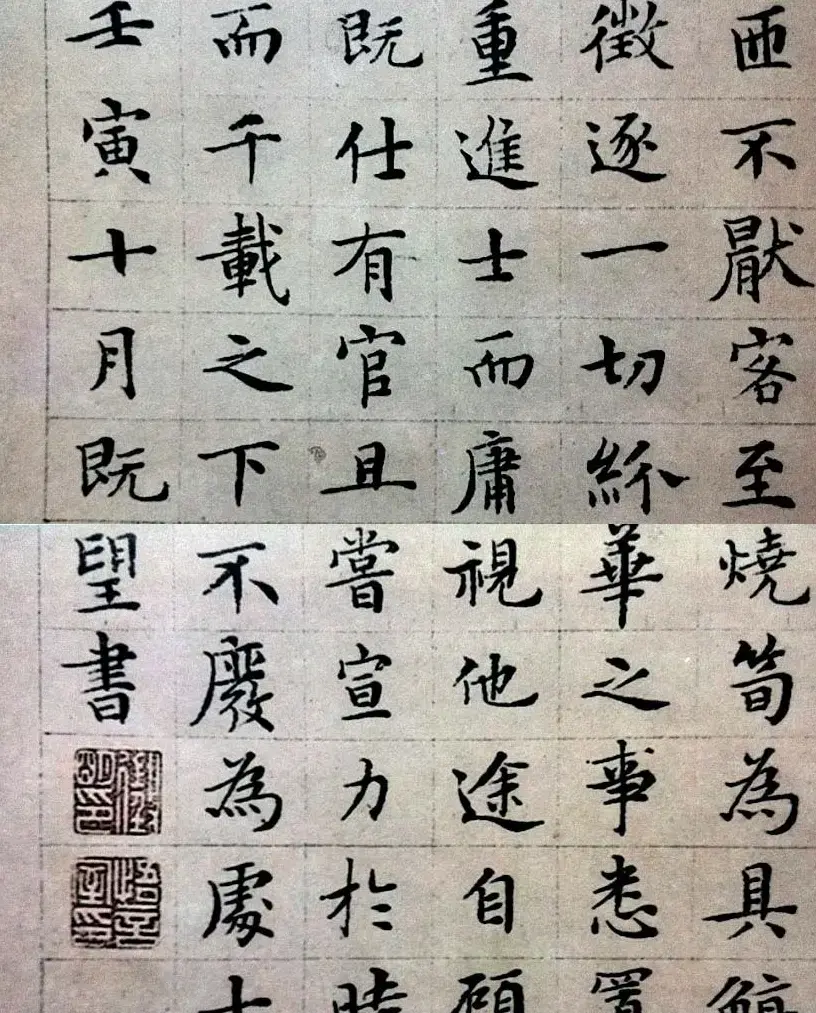 匝不厭客至燒筍為具
徵逐一切紛華之事悉置
重進士而庸視他途自顧
既仕有官且嘗宣力於時
而千載之下不廢為處士
壬寅十月既望書